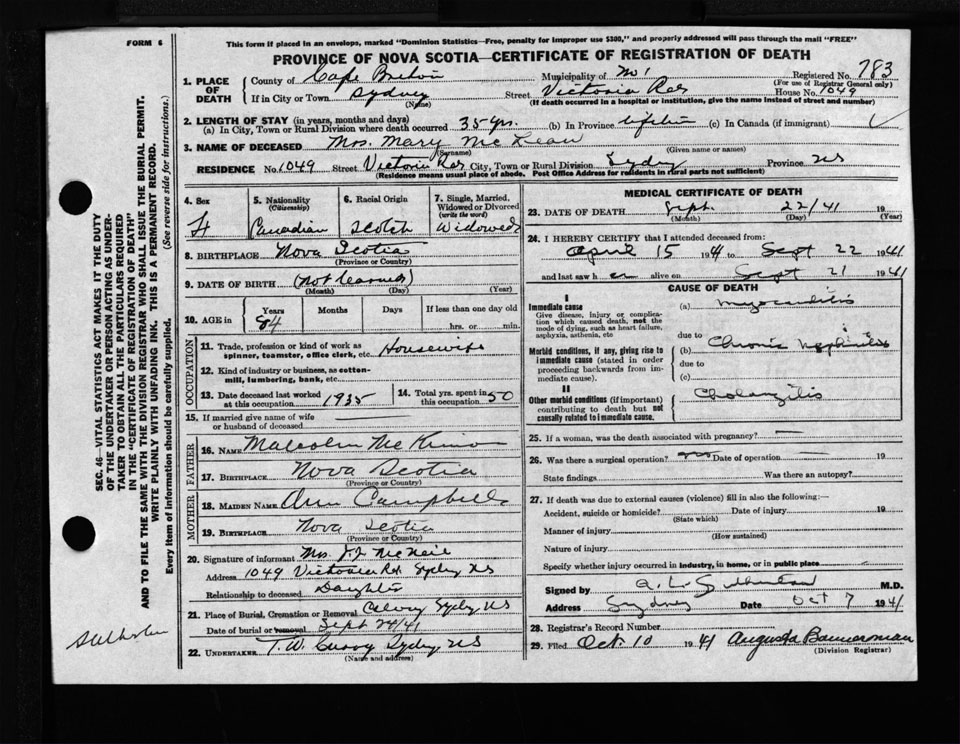 FORM 6
This form if placed in an envelope, marked "Dominion Statistics—Free, penalty for improper use $300," and properly addressed will pass through the mail "FREE"
PROVINCE OF NOVA SCOTIA—CERTIFICATE OF REGISTRATION OF DEATH
SEC. 46—VITAL STATISTICS ACT MAKES IT THE DUTY
OF THE UNDERTAKER OR PERSON ACTING AS UNDER-
TAKER TO OBTAIN ALL THE PARTICULARS REQUIRED
IN THE "CERTIFICATE OF REGISTRATION OF DEATH"
AND TO FILE THE SAME WITH THE DIVISION REGISTRAR WHO SHALL ISSUE THE BURIAL PERMIT.
WRITE PLAINLY WITH UNFADING INK. THIS IS A PERMANENT RECORD.
Every item of information should be carefully supplied. (See reverse side for instructions.)
1. PLACE OF DEATH County of Cape Breton Municipality of Registered No. 783
(For use of Registrar General only)
If in City or Town Sydney Street Victoria Rd House No. 1049
(Name) (If death occurred in a hospital or institution, give the name instead of street and number)
2. LENGTH OF STAY (in years, months and days)
(a) In City, Town or Rural Division where death occurred 35 yrs. (b) In Province lifetime (c) In Canada (if immigrant)
3. NAME OF DECEASED Mrs. Mary McLean
(Surname) (Given name or names)
RESIDENCE No. 1049 Street Victoria Rd City, Town or Rural Division Sydney Province NS
(Residence means usual place of abode. Post Office Address for residents in rural parts not sufficient)
4. Sex 5. Nationality (Citizenship) 6. Racial Origin 7. Single, Married, Widowed or Divorced (write the word)
F Canadian Scotch Widowed
8. BIRTHPLACE Nova Scotia
(Province or Country)
9. DATE OF BIRTH (not learned)
(Month) (Day) (Year)
10. AGE in Years Months Days If less than one day old
84 hrs. or min.
OCCUPATION
11. Trade, profession or kind of work as spinner, teamster, office clerk, etc. Housewife
12. Kind of industry or business, as cotton-mill, lumbering, bank, etc.
13. Date deceased last worked at this occupation 1935 14. Total yrs. spent in this occupation 50
15. If married give name of wife or husband of deceased
FATHER
16. NAME Malcolm McKinnon
17. BIRTHPLACE Nova Scotia
(Province or Country)
MOTHER
18. MAIDEN NAME Ann Campbell
19. BIRTHPLACE Nova Scotia
(Province or Country)
20. Signature of informant Mrs. J J McNeil
Address 1049 Victoria Rd. Sydney NS
Relationship to deceased Daughter
21. Place of Burial, Cremation or Removal Calvary Sydney NS
Date of burial or removal Sept 24/41
22. UNDERTAKER T. W. Curry Sydney NS
(Name and address)
MEDICAL CERTIFICATE OF DEATH
23. DATE OF DEATH Sept. 22/41 19
(Month) (Day) (Year)
24. I HEREBY CERTIFY that I attended deceased from:
April 15 1941 to Sept 22 1941
and last saw h er alive on Sept 21 1941
CAUSE OF DEATH
I
Immediate cause (a) Myocarditis
Give disease, injury or complication which caused death, not the mode of dying, such as heart failure, asphyxia, asthenia, etc
due to
Morbid conditions, if any, giving rise to immediate cause (stated in order proceeding backwards from immediate cause). (b) Chronic Nephritis
due to
(c)
II
Other morbid conditions (if important) contributing to death but not causally related to immediate cause. Cholangitis
25. If a woman, was the death associated with pregnancy? —
26. Was there a surgical operation? no Date of operation — 19
State findings Was there an autopsy?
27. If death was due to external causes (violence) fill in also the following:—
Accident, suicide or homicide? Date of injury 19
(State which)
Manner of injury
(How sustained)
Nature of injury
Specify whether injury occurred in industry, in home, or in public place
Signed by M.D.
Address Sydney Date Oct 7 1941
28. Registrar's Record Number
29. Filed Oct. 10 1941 Augusta Bannerman
(Division Registrar)